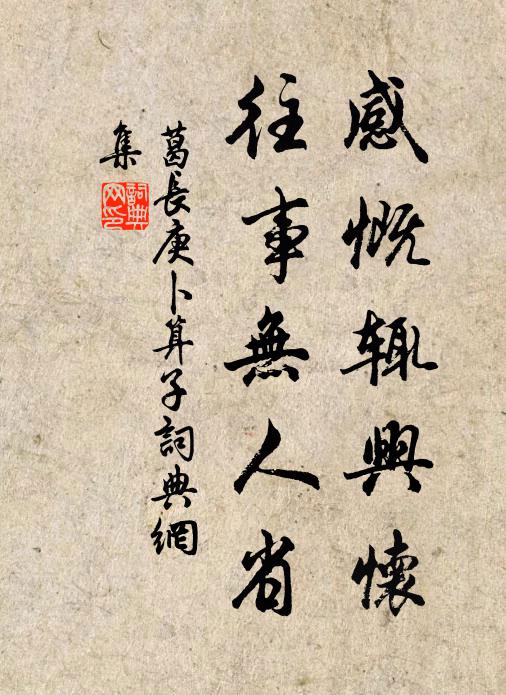 感慨辄興懷
往事無人省
葛長庚卜算子詞典網
集
詞典網印